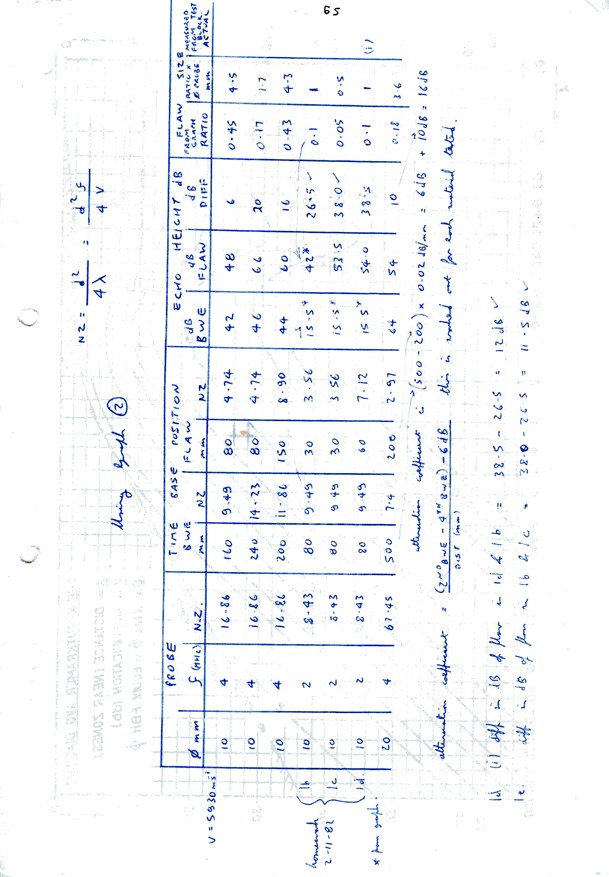 65
NZ = d² / 4λ = d² f / 4 V
Using Graph ②
V = 5930 ms⁻¹
PROBE | TIME BASE POSITION | ECHO HEIGHT dB | FLAW SIZE
Ø mm | f (MHz) | N.Z. | BWE mm | NZ | FLAW mm | NZ | dB BWE | dB FLAW | dB DIFF | FROM GRAPH RATIO | RATIO x Ø PROBE mm | MEASURED FROM TEST BLOCK ACTUAL
10 | 4 | 16.86 | 160 | 9.49 | 80 | 4.74 | 42 | 48 | 6 | 0.45 | 4.5
10 | 4 | 16.86 | 240 | 14.23 | 80 | 4.74 | 46 | 66 | 20 | 0.17 | 1.7
10 | 4 | 16.86 | 200 | 11.86 | 150 | 8.90 | 44 | 60 | 16 | 0.43 | 4.3
homework 2-11-82
1b | 10 | 2 | 8.43 | 80 | 9.49 | 30 | 3.56 | 15.5* | 42* | 26.5 ✓ | 0.1 | 1
1c | 10 | 2 | 8.43 | 80 | 9.49 | 30 | 3.56 | 15.5* | 53.5 | 38.0 ✓ | 0.05 | 0.5
1d | 10 | 2 | 8.43 | 80 | 9.49 | 60 | 7.12 | 15.5* | 54.0 | 38.5 | 0.1 | 1 | (i)
20 | 4 | 67.45 | 500 | 7.4 | 200 | 2.97 | 64 | 54 | 10 | 0.18 | 3.6
* from graph.
attenuation coefficient is (500 - 200) x 0.02 dB/mm = 6dB + 10dB = 16dB
attenuation coefficient = (2ND BWE - 4TH BWE) - 6dB / DIST (mm) this is worked out for each material tested.
1d (i) diff in dB of flaw in 1d & 1b = 38.5 - 26.5 = 12 dB ✓
1c. diff in dB of flaw in 1b & 1c = 38.0 - 26.5 = 11.5 dB ✓